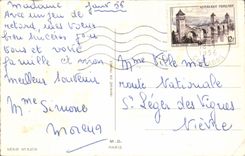 Madame Janv 56
Avec un peu de
retard mes vœux
bien sincères pour
vous et votre
famille et mon
meilleur souvenir
Mme Simone
RÉPUBLIQUE FRANÇAISE
Mme
route Nationale
St Léger des Vignes
Nièvre
M.D.
PARIS